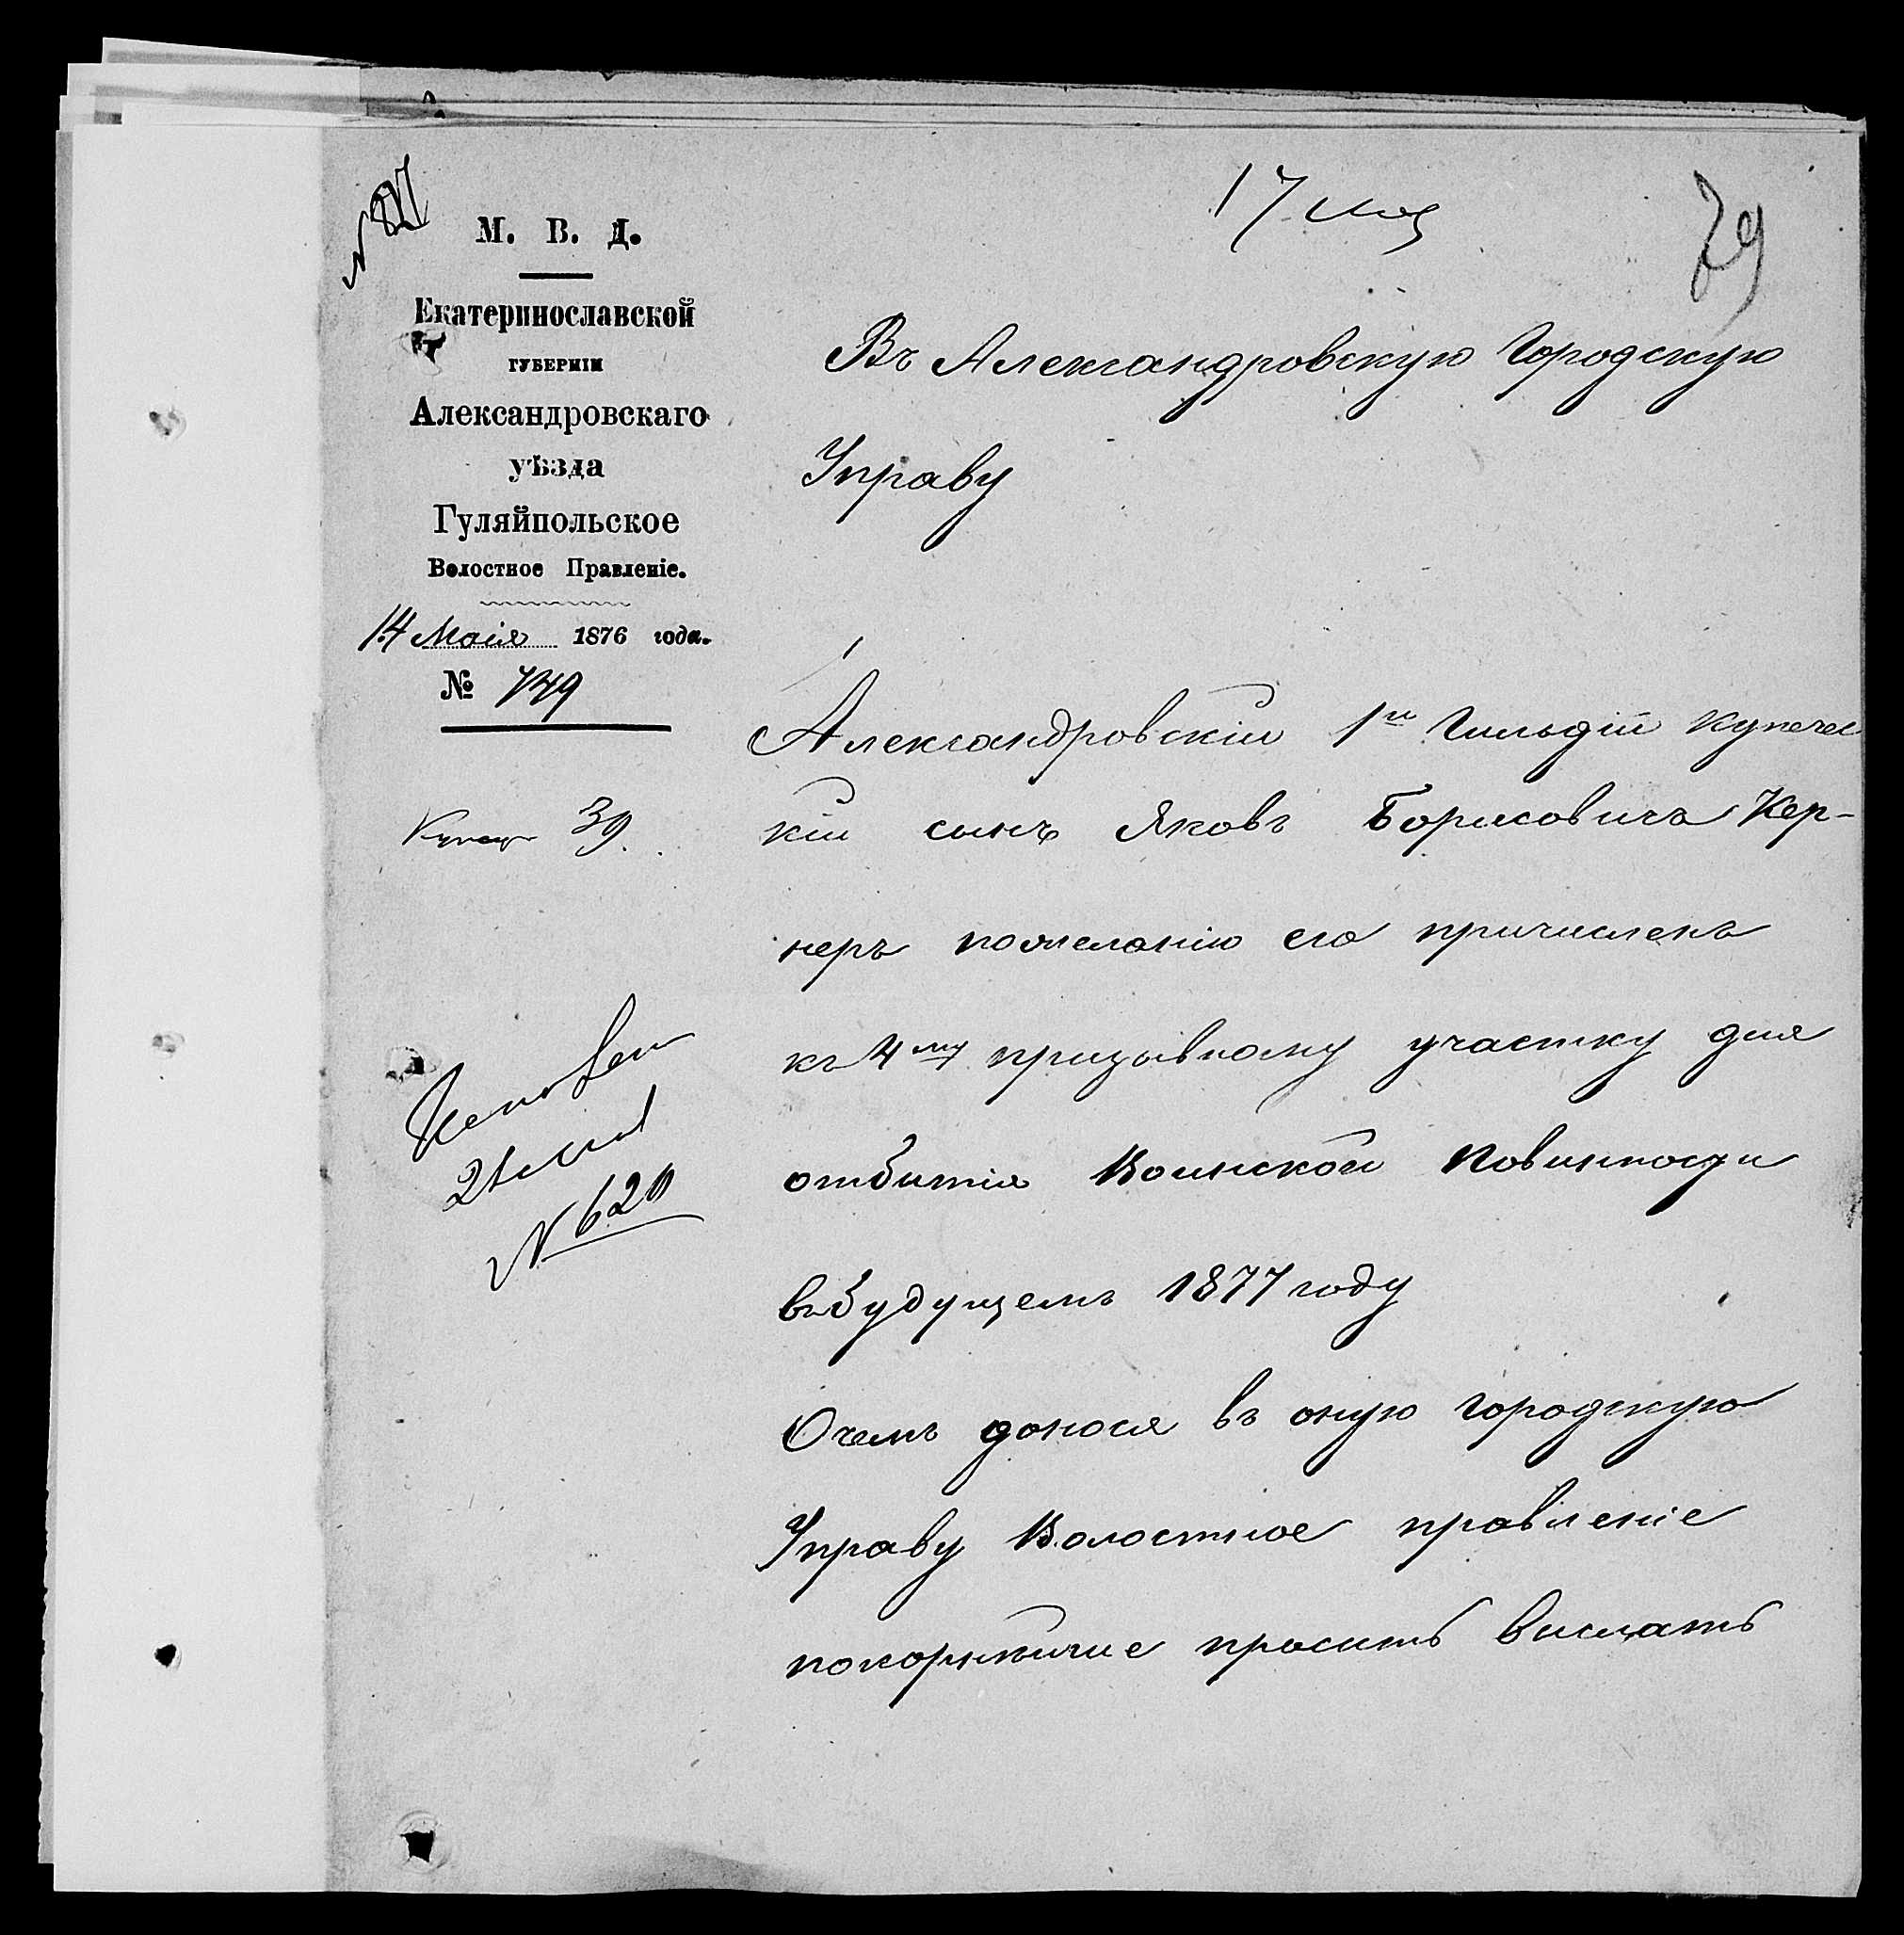 17 мая
79
М. В. Д.
Екатеринославской
ГУБЕРНІИ
Александровскаго
уѣзда
Гуляйпольское
Волостное Правленіе.
14 Маія 1876 года.
№ 749
39.
21 мая
№ 620
Въ Александровскую Городскую
Управу
Александровскій 1й Гильдіи купечес
кій сынъ Яковъ Борисовичъ Кер-
неръ пожеланію его причисленъ
къ 4му призывному участку для
отбытія Воинской Повинности
вбудущемъ 1877 году
Очемъ донося въ оную городскую
Управу Волостное правленіе
покорнѣйше проситъ выслать